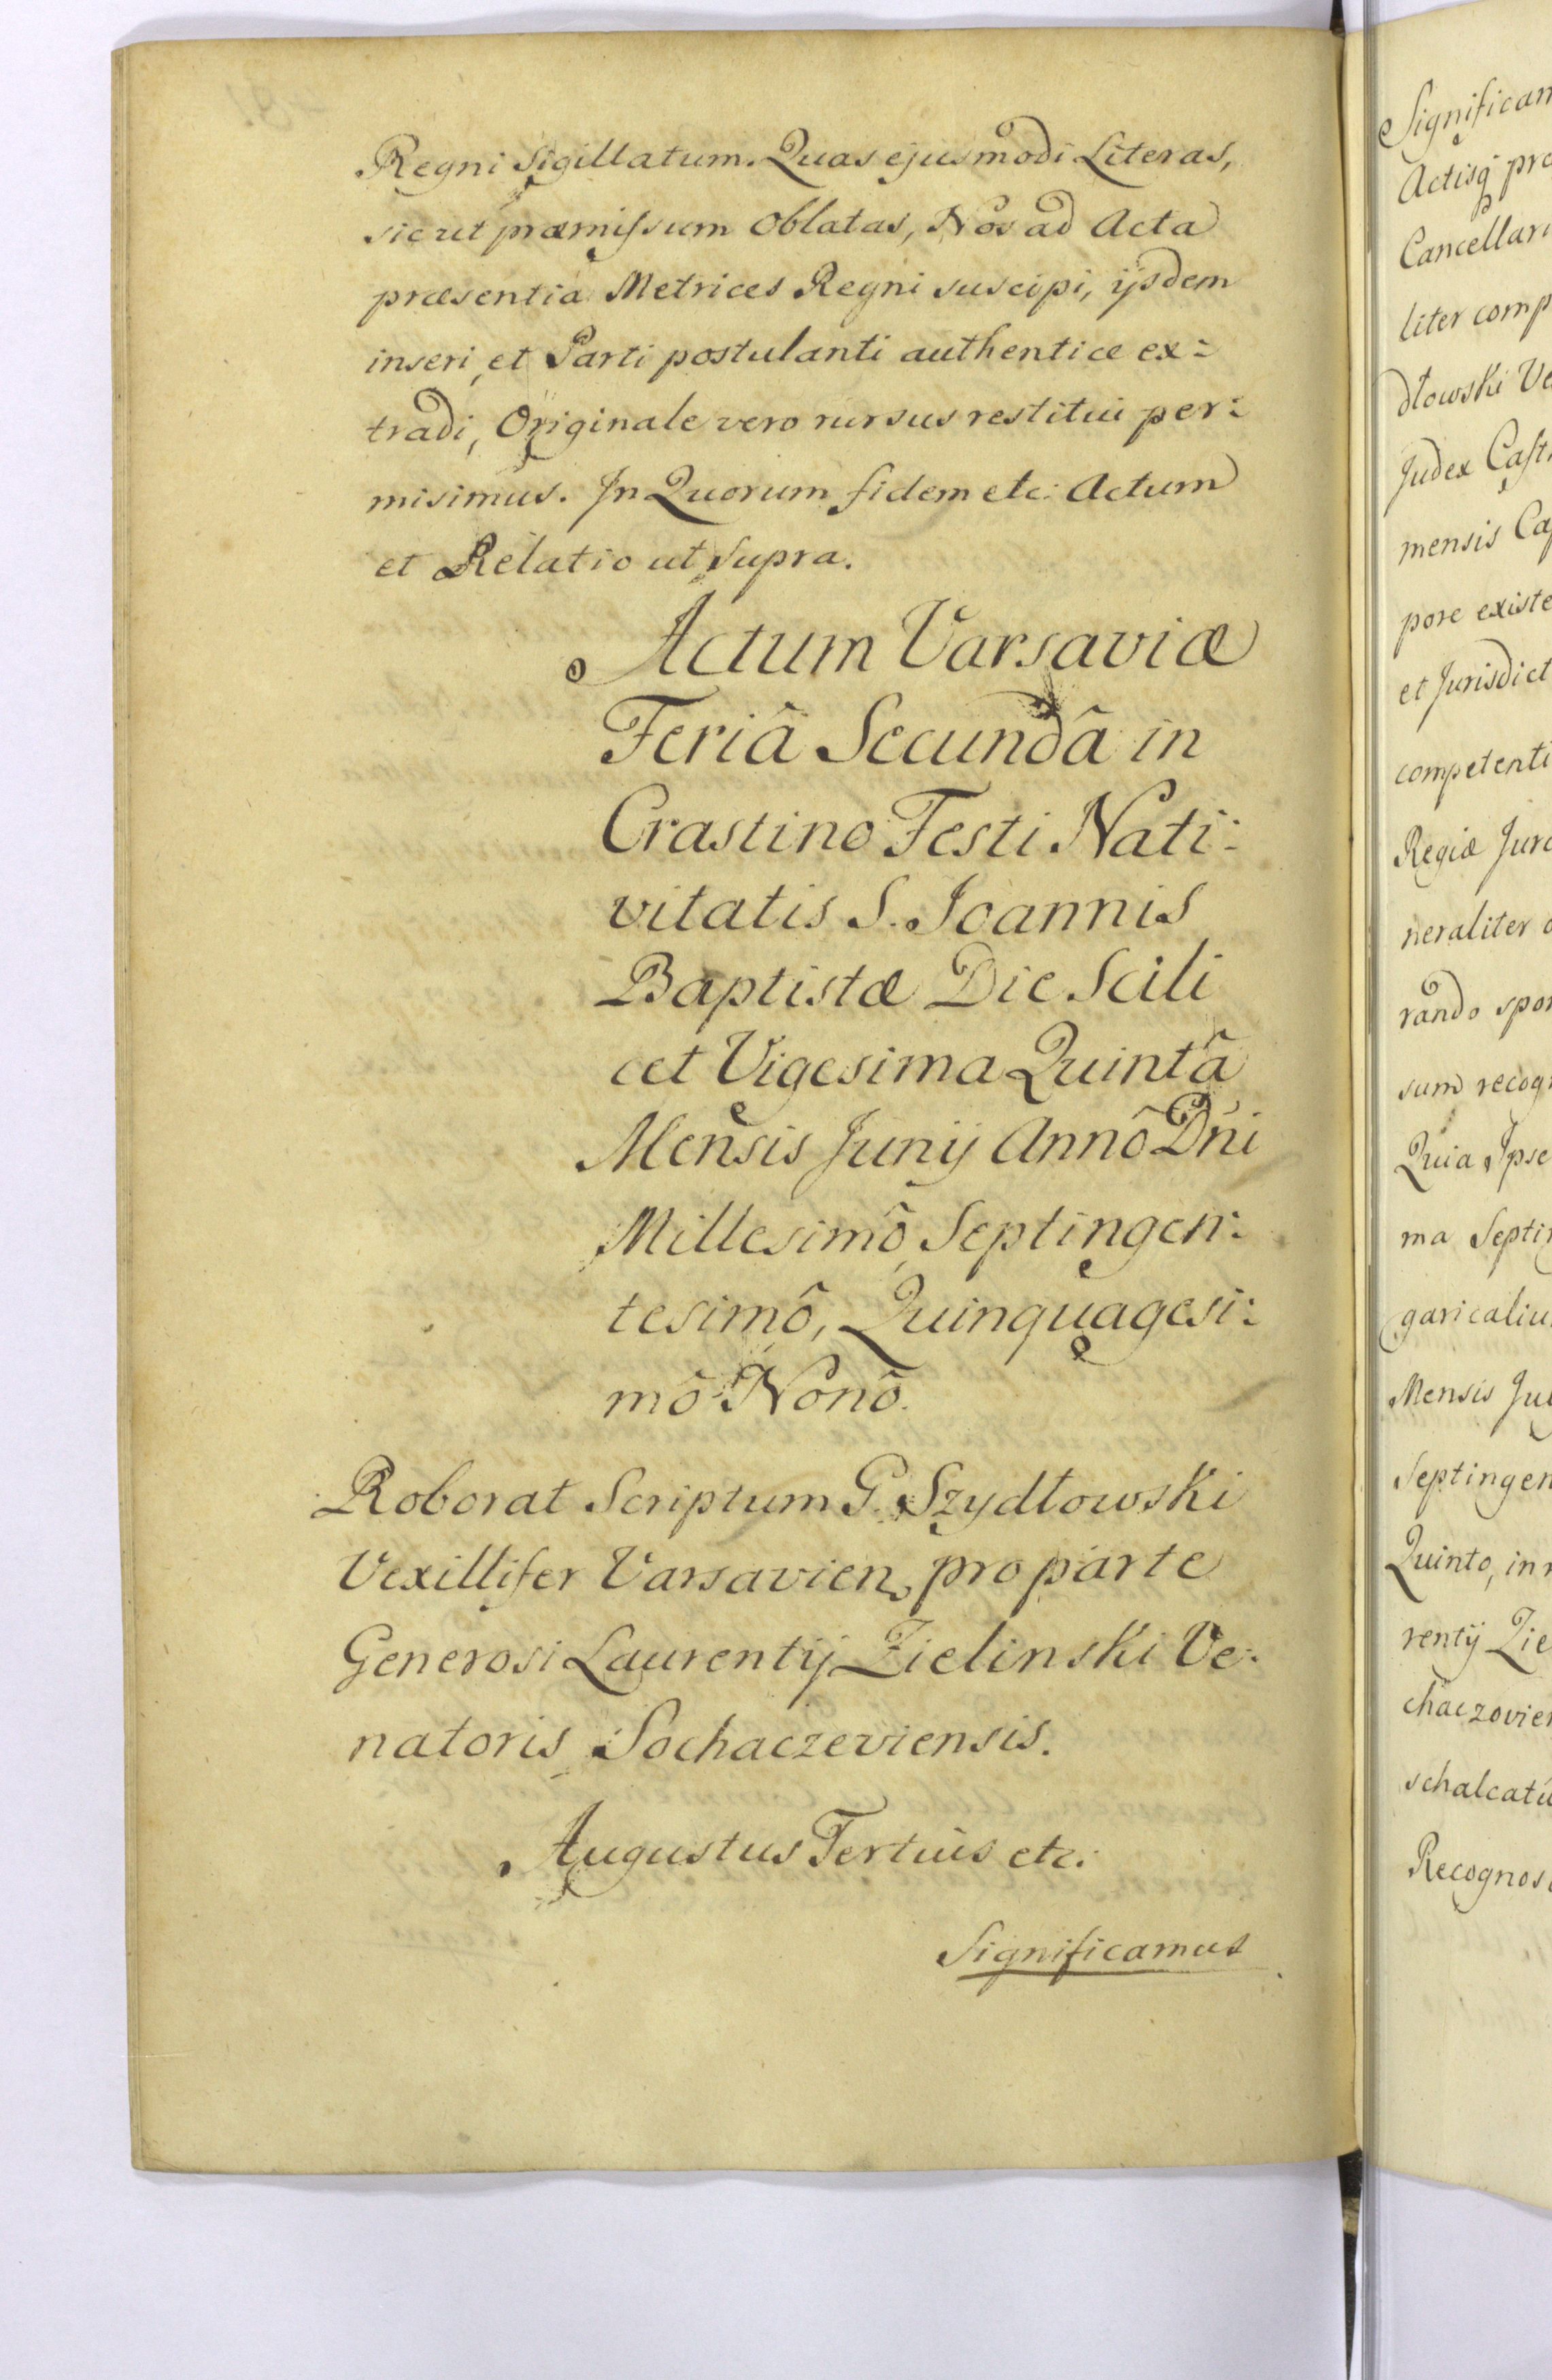 Regni Sigillatum. Quas ejusmodi Literas,
sicut præmissum Oblatas, Nos ad Acta
præsentia Metrices Regni suscipi, ijsdem
inseri, et Parti postulanti authentice ex:
tradi, Originale vero rursus restitui per:
misimus. In Quorum fidem etc: Actum
et Relatio ut Supra.
Actum Varsaviæ
Feriâ Secundâ in
Crastino Festi Nati:
vitatis S. Joannis
Baptistæ Die Scili
cet Vigesima Quintâ
Mensis Junij Annô Dñi
Millesimô Septingen:
tesimô, Quinquagesi:
mô Nonô.
Roborat Scriptum G. Szydłowski
Vexillifer Varsavien. pro parte
Generosi Laurentij Zielinski Ve:
natoris Sochaczeviensis.
Augustus Tertius etc:
Significamus
Significam
Actisq pro
Cancellari
liter comp
dłowski Ve
Judex Cast
mensis Cap
pore existe
et Jurisdict
competenti
Regiæ Jura
neraliter
rando spon
sum recogn
Quia Ipse
ma Septin
garicaliu
Mensis Jul
Septingen
Quinto, in
rentij Zie
chaczovien
schalcatu
Recognos